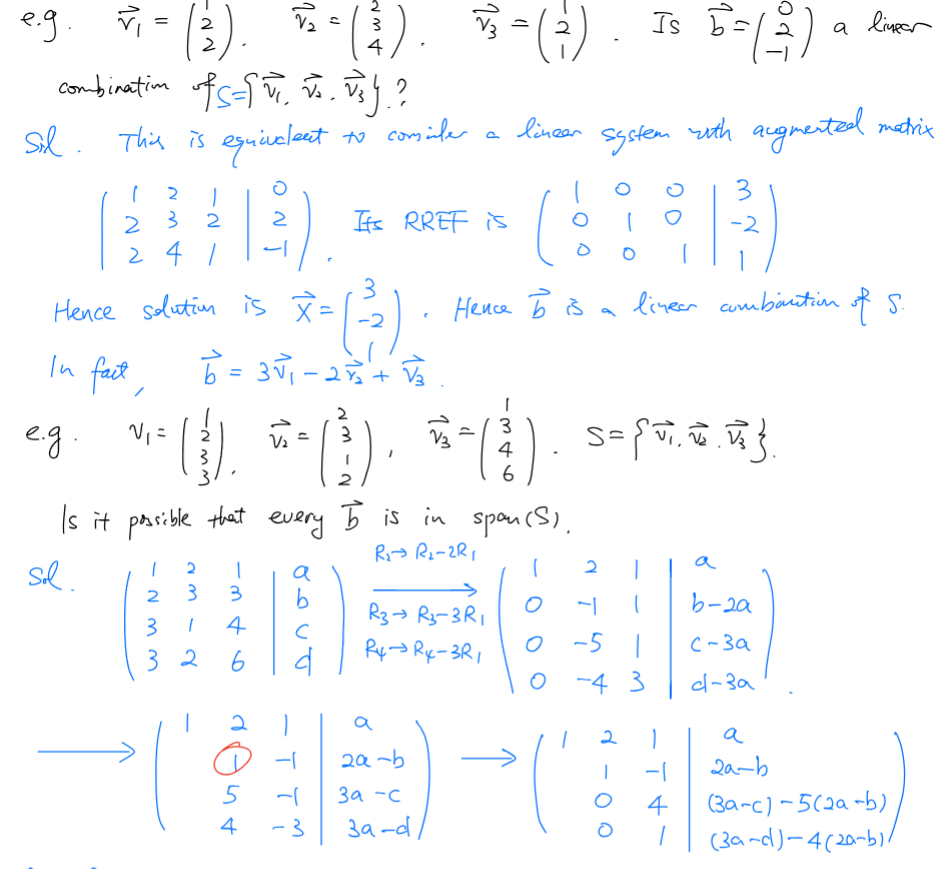 e.g. v⃗₁ = (1 2 2). v⃗₂ = (2 3 4). v⃗₃ = (1 2 1). Is b⃗ = (0 2 -1) a linear
combination of S={v⃗₁, v⃗₂, v⃗₃}.?
Sol. This is equivalent to consider a linear system with augmented matrix
( 1 2 1 | 0
2 3 2 | 2
2 4 1 | -1 ). Its RREF is ( 1 0 0 | 3
0 1 0 | -2
0 0 1 | 1 )
Hence solution is x⃗ = (3 -2 1). Hence b⃗ is a linear combination of S.
In fact, b⃗ = 3v⃗₁ - 2v⃗₂ + v⃗₃.
e.g. v₁ = (1 2 3 3), v⃗₂ = (2 3 1 2), v⃗₃ = (1 3 4 6). S = {v⃗₁, v⃗₂, v⃗₃}.
Is it possible that every b⃗ is in span(S).
Sol. ( 1 2 1 | a
2 3 3 | b
3 1 4 | c
3 2 6 | d )
R₂→ R₂-2R₁
R₃→ R₃-3R₁
R₄→ R₄-3R₁
( 1 2 1 | a
0 -1 1 | b-2a
0 -5 1 | c-3a
0 -4 3 | d-3a ).
→ ( 1 2 1 | a
1 -1 | 2a-b
5 -1 | 3a-c
4 -3 | 3a-d )
→ ( 1 2 1 | a
1 -1 | 2a-b
0 4 | (3a-c)-5(2a-b)
0 1 | (3a-d)-4(2a-b) )